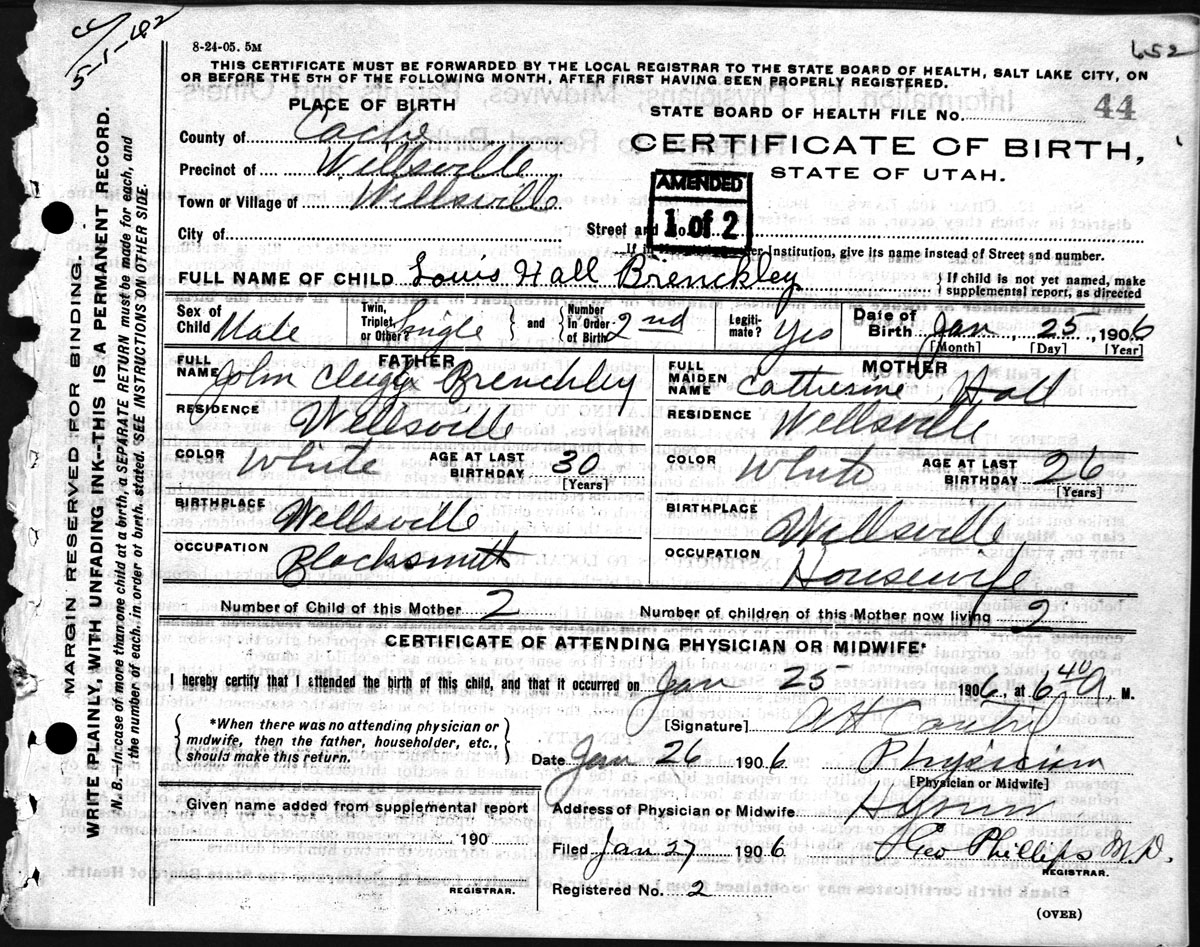 5-1-42
8-24-05. 5M
652
THIS CERTIFICATE MUST BE FORWARDED BY THE LOCAL REGISTRAR TO THE STATE BOARD OF HEALTH, SALT LAKE CITY, ON
OR BEFORE THE 5TH OF THE FOLLOWING MONTH, AFTER FIRST HAVING BEEN PROPERLY REGISTERED.
PLACE OF BIRTH
STATE BOARD OF HEALTH FILE No. 44
County of Cache
CERTIFICATE OF BIRTH,
STATE OF UTAH.
Precinct of Wellsville
Town or Village of Wellsville
AMENDED
1 of 2
City of
Street and No.
If in Institution, give its name instead of Street and number.
FULL NAME OF CHILD Louis Hall Brenckley
} If child is not yet named, make
supplemental report, as directed
Sex of Child Male
Twin, Triplet, or Other? Single } and { Number in Order of Birth 2nd
Legiti- mate? Yes
Date of Birth Jan 25, 1906
[Month] [Day] [Year]
FATHER
FULL NAME John Clegg Brenchley
RESIDENCE Wellsville
COLOR White AGE AT LAST BIRTHDAY 30
[Years]
BIRTHPLACE Wellsville
OCCUPATION Blacksmith
MOTHER
FULL MAIDEN NAME Catherine Hall
RESIDENCE Wellsville
COLOR White AGE AT LAST BIRTHDAY 26
[Years]
BIRTHPLACE Wellsville
OCCUPATION Housewife
Number of Child of this Mother 2 Number of children of this Mother now living 2
CERTIFICATE OF ATTENDING PHYSICIAN OR MIDWIFE*
I hereby certify that I attended the birth of this child, and that it occurred on Jan 25 1906, at 6 40 A M.
{ *When there was no attending physician or
midwife, then the father, householder, etc.,
should make this return. }
[Signature]
Date Jan 26 1906 Physician
[Physician or Midwife]
Given name added from supplemental report
190
REGISTRAR.
Address of Physician or Midwife Hyrum
Filed Jan 27 1906 Geo Phillips M.D.
REGISTRAR.
Registered No. 2
(OVER)
MARGIN RESERVED FOR BINDING.
WRITE PLAINLY, WITH UNFADING INK--THIS IS A PERMANENT RECORD.
N. B.—In case of more than one child at a birth, a SEPARATE RETURN must be made for each, and
the number of each, in order of birth, stated. SEE INSTRUCTIONS ON OTHER SIDE.